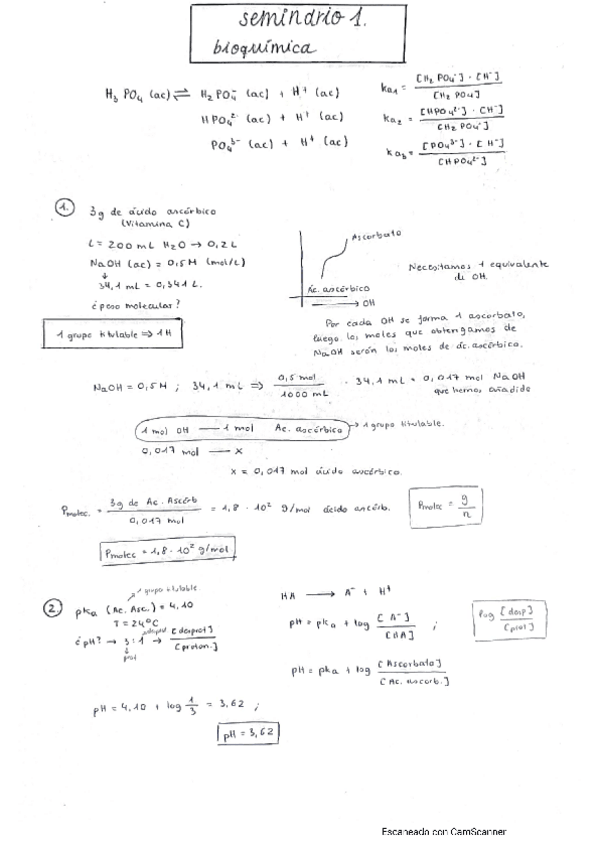 seminario 1.
bioquímica
H₃ PO₄ (ac) ⇌ H₂ PO₄⁻ (ac) + H⁺ (ac)
ka₁ = [H₂ PO₄⁻] · [H⁻] / [H₂ PO₄]
HPO₄²⁻ (ac) + H⁺ (ac)
ka₂ = [HPO₄²⁻] · [H⁻] / [H₂ PO₄⁻]
PO₄³⁻ (ac) + H⁺ (ac)
ka₃ = [PO₄³⁻] · [H⁻] / [HPO₄²⁻]
1.
3g de ácido ascórbico
(Vitamina C)
L = 200 mL H₂O → 0,2 L
NaOH (ac) = 0,5 M (mol/L)
↓
34,1 mL = 0,341 L.
¿peso molecular?
1 grupo titulable ⇒ 1H
Ascorbato
Ác. ascórbico
→ OH
Necesitamos 1 equivalente
de OH.
Por cada OH se forma 1 ascorbato,
luego los moles que obtengamos de
NaOH serán los moles de ác. ascórbico.
NaOH = 0,5 M ; 34,1 mL ⇒ 0,5 mol / 1000 mL · 34,1 mL = 0,017 mol NaOH
que hemos añadido
1 mol OH — 1 mol Ac. ascórbico → 1 grupo titulable.
0,017 mol — x
x = 0,017 mol ácido ascórbico.
Pmolec. = 3g de Ac. Ascórb / 0,017 mol = 1,8 · 10² g/mol ácido ascórb.
Pmolec = g / n
Pmolec = 1,8 · 10² g/mol
2.
1 grupo titulable
pka (Ac. Asc.) = 4,10
T = 24ºC
¿pH? → 3:1 → [desprot] / [proton.]
desprot
prot
HA → A⁻ + H⁺
pH = pka + log [A⁻] / [HA] ;
log [desp] / [prot]
pH = pka + log [Ascorbato] / [Ac. ascorb.]
pH = 4,10 + log 1/3 = 3,62 ;
pH = 3,62
Escaneado con CamScanner